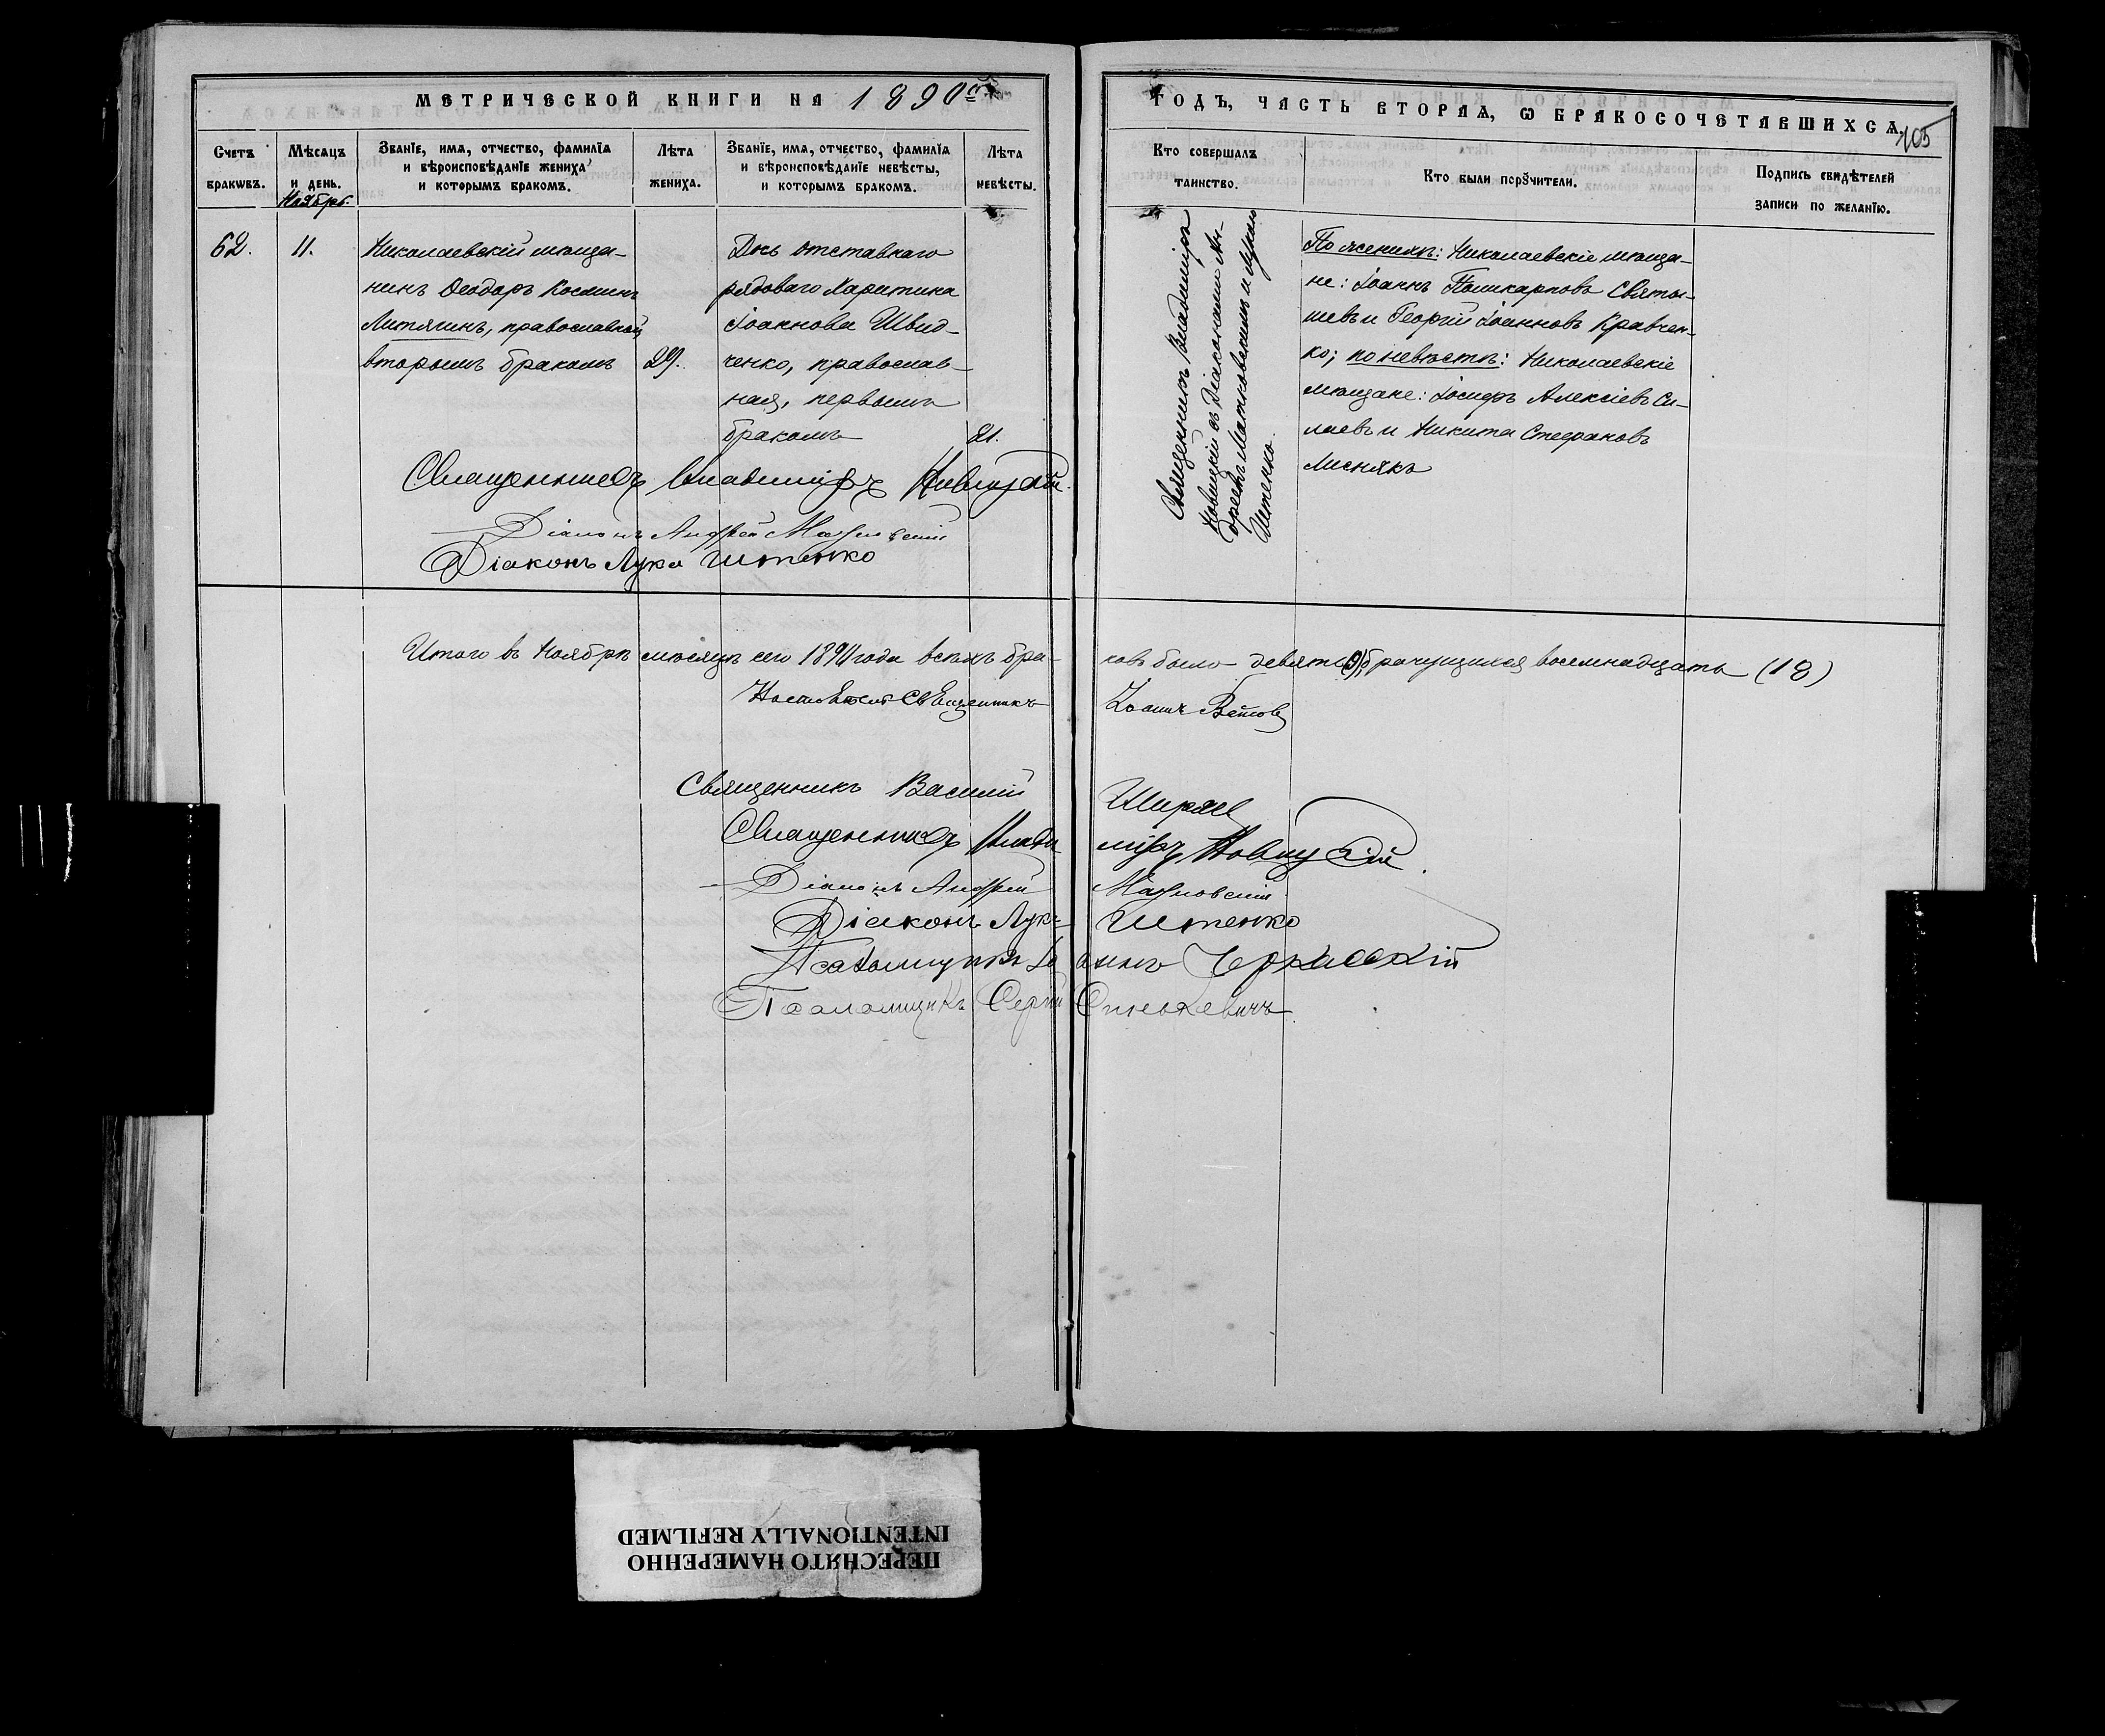 МЕТРИЧЕСКОЙ КНИГИ НА 1890й
ГОДЪ, ЧАСТЬ ВТОРАЯ, Ѡ БРАКОСОЧЕТАВШИХСЯ,
105
Счетъ браковъ.
Мѣсяцъ и день.
Званїе, имя, отчество, фамилїя
и вѣроисповѣданїе жениха
и которымъ бракомъ.
Лѣта жениха.
Званїе, имя, отчество, фамилїя
и вѣроисповѣданїе невѣсты,
и которымъ бракомъ.
Лѣта невѣсты.
Кто совершалъ
таинство.
Кто были порꙋчители.
Подпись свидѣтелей
записи по желанїю.
Ноябрь.
62.
11.
Николаевскій мѣща-
нинъ Ѳеодоръ Косминъ
Литягинъ, православный,
вторымъ бракомъ
29.
Дочь отставнаго
рядоваго Харитина
Іоаннова Швид-
ченко, православ-
ная, первымъ
бракомъ
21.
Священникъ Владиміръ
Новицкій съ Діаконами Ан-
дреемъ Матковскимъ и Лукою
Иттенко.
По женихѣ: Николаевскіе мѣща-
не: Іоаннъ Поликарповъ Святы-
шевъ и Георгій Іоанновъ Кравчен-
ко; по невѣстѣ: Николаевскіе
мѣщане: Іосифъ Алексіевъ Си-
лаевъ и Никита Стефановъ
Лиснякъ
Священникъ Владиміръ Новицкій.
Діаконъ Андрей
Діаконъ Лука
Итого въ Ноябрѣ мѣсяцѣ сего 1890 года всѣхъ бра-
ковъ было девять (9), брачущихся восемнадцать (18)
Настоятель Священникъ Іоаннъ
Священникъ Василій Ширяев
Священникъ Владиміръ Новицкій.
Діаконъ Андрей
Діаконъ Лука
Псаломщикъ Іоаннъ Черкасскій
Псаломщикъ Сергій Синькевичъ.
ПЕРЕСНЯТО НАМЕРЕННО
INTENTIONALLY REFILMED